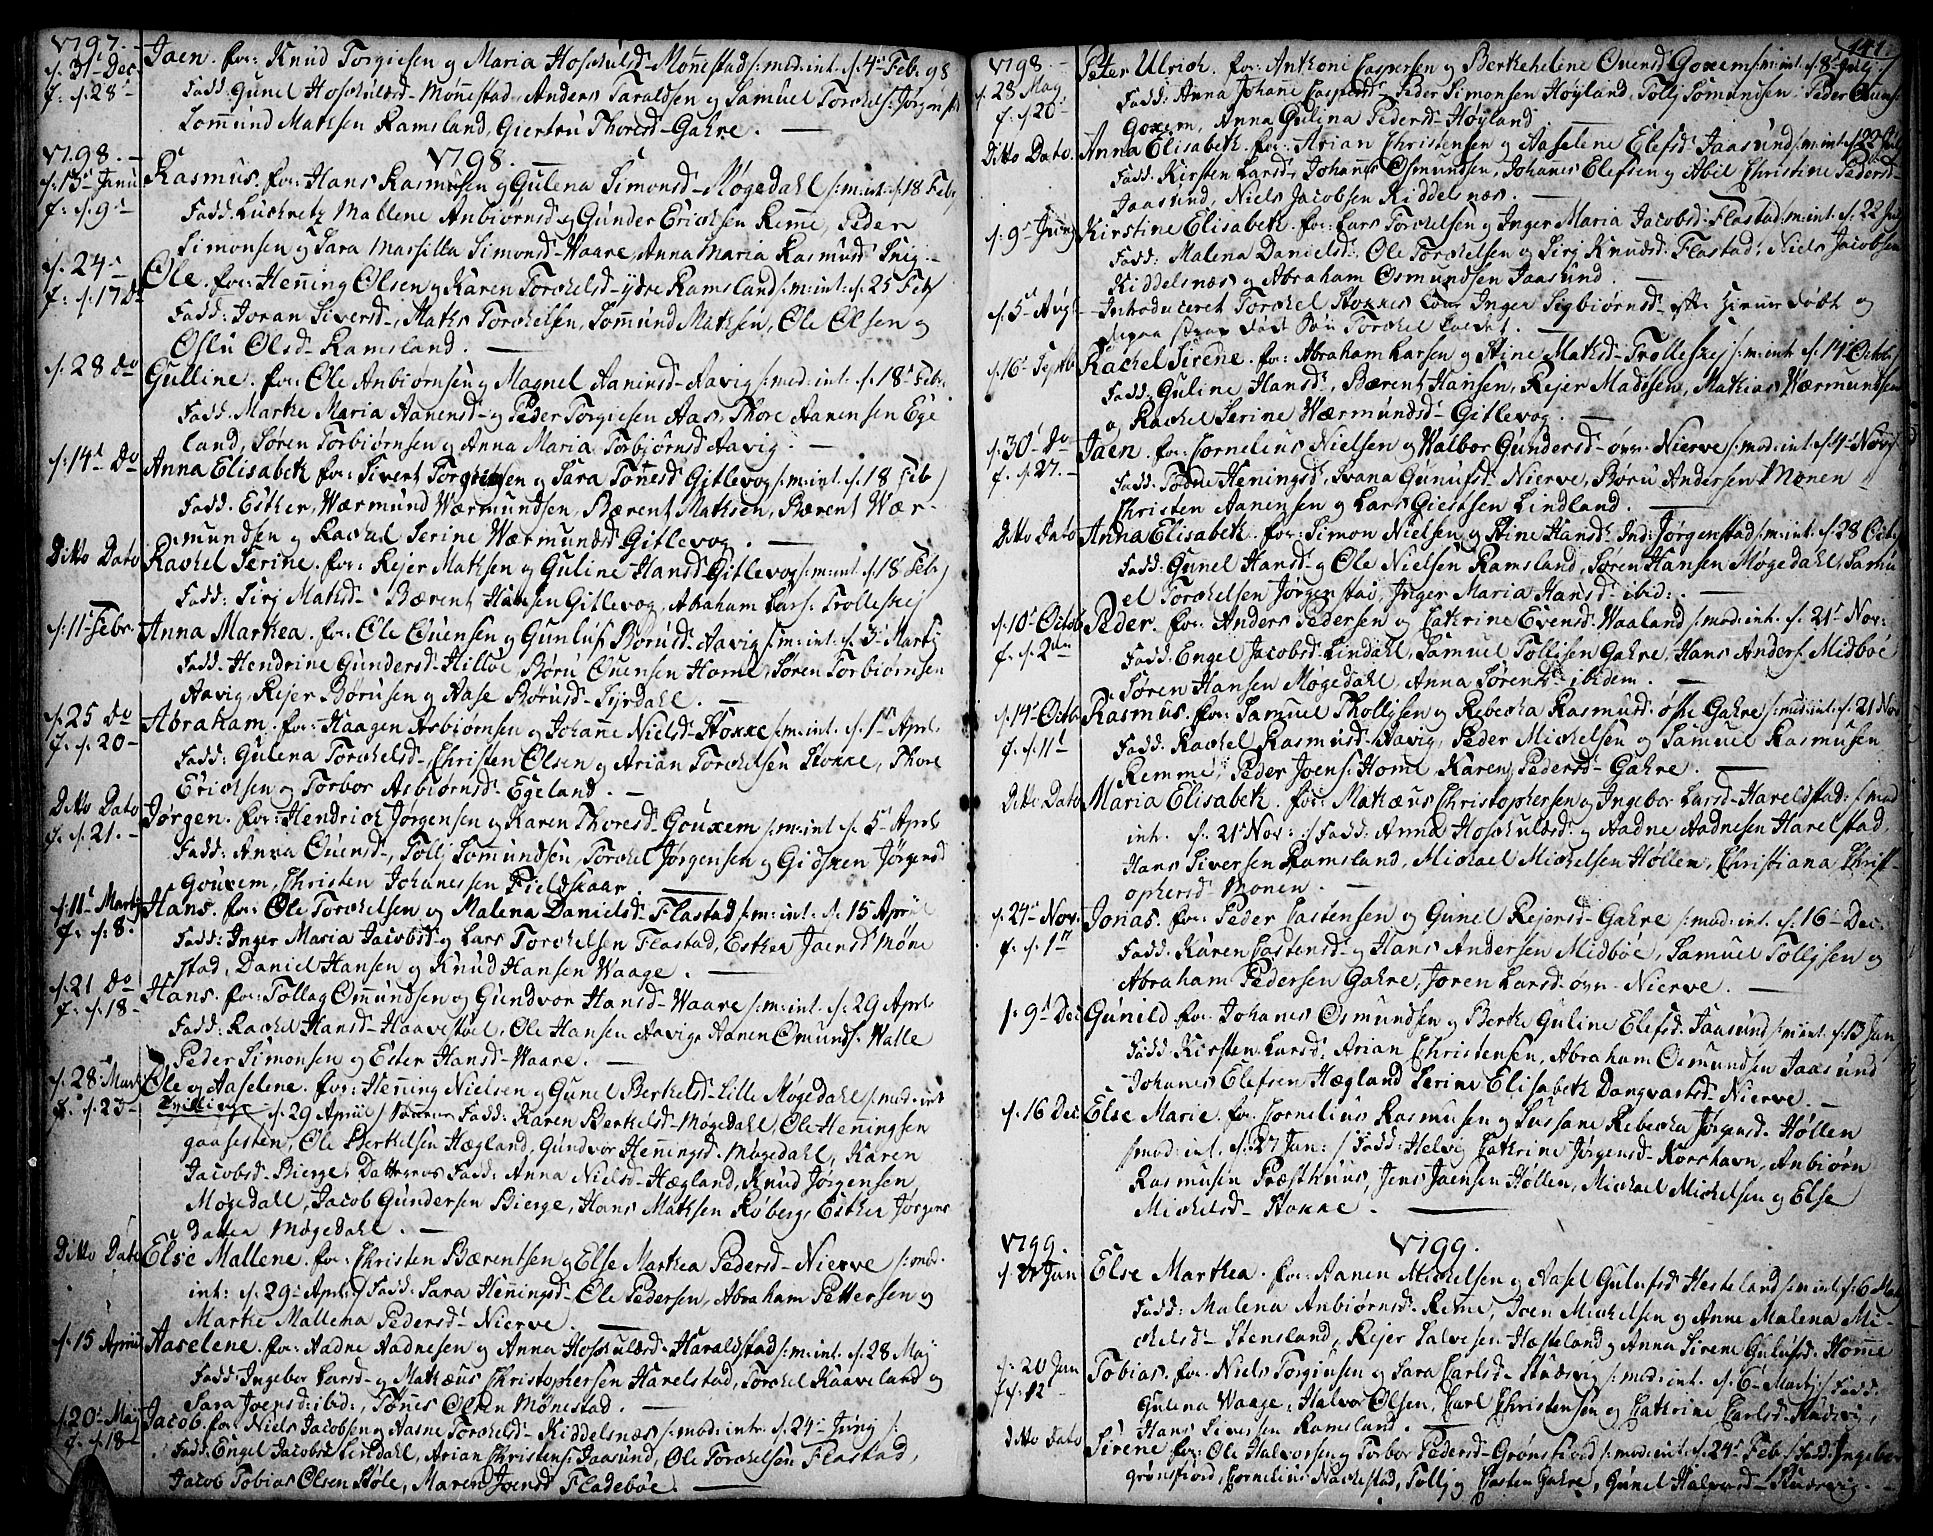 1797.
d. 31 Dec Jaen. for: Knud Torgiesen og Maria Hoskulsd Mønestad /:mod:int. d. 4 Feb. 98
f. d. 28 Fadd: Gunel Hoskulsd Mønnestad, Anders Taraldsen og Samuel Torchels: Jørgenst
Lommund Mathsen Ramsland, Giertru Thoresd Gahre.
1798. 1798.
d. 13 Janu Rasmus. for: Hans Rasmussen og Gulena Simonsd Møgedahl /:m:int. d. 18 Feb
f. d. 9 Fadd: Mallene Anbiørnsd og Gunder Erichsen Remme, Peder
Simonsen og Sara Marsilla Simonsd Waare, Anna Maria Rasmusd
d. 24 Ole. for: Henning Olsen og Karen Torchelsd ydre Ramsland /:m:int. d. 25 Feb/
f. d. 17 do Fadd: Joran Siversd, Maths Torchelsen, Lommund Mathsen, Ole Olsen og
Oslu Olsd Ramsland.
d. 28 do Gulline. for: Ole Anbiørnsen og Magnel Aanensd Aavig /:mod:int. d. 18 Feb.
Fadd: Marthe Maria Aanensd og Peder Torgiesen Aas, Thore Aanensen Ege
land, Søren Torbiørnsen og Anna Maria Torbiørnsd Aavig.
d. 14 Do Anna Elisabeth for: Sivert Torgiesen og Sara Tønesd Gitlevog /:m:int. d. 18 Feb/
Fadd: Esther, Wærmund Wærmundsen, Bærent Mathsen, Bærent Wær-
mundsen og Rachel Serine Wærmundsd Gitlevog.
Ditto Dato Rachel Serine. for: Rejer Mathsen og Guline Hansd Gitlevog /:m:int. d. 18 Feb/
Fadd: Siri Mathsd Bærent Hansen Gitlevog, Abraham Lars: Trolleskej
d. 11 Febr Anna Marthea. for: Ole Ouensen og Gunluf Børusd Aavig /:m:int. d. 3 Martj
Fadd: Hendrine Gundersd Hilløe, Børu Ouensen Home, Søren Torbiørnsen
Aavig, Rejer Børusen og Aase Børusd Syrdahl.
d. 25 do Abraham. for: Haagen Asbiørnsen og Johanne Nielsd Stokke /:mod:int. d. 1 April
f. d. 20 Fadd: Gulena Torchelsd, Christen Olsen og Arian Torchelsen Stokke, Thore
Erichsen og Torbor Asbiørnsd Egeland.
Ditto Dato Jørgen. for: Hendrich Jørgensen og Karen Thoresd Gouxem /:m:int d. 5 April
f. d. 21. Fadd: Anna Ouensd, Tollj Lommundsen, Torchel Jørgensen og Gidsken Jørgensd
Gouxem, Christen Johanessen Fieldskaar.
d. 11 Martj Hans. for: Ole Torchelsen og Malena Danielsd Flastad /:m:int. d. 15 Apriil
f. d. 8. Fadd: Inger Maria Jacobsd og Lars Torchelsen Flastad, Esther Jaensd Møne
stad, Daniel Hansen og Knud Hansen Waage.
d. 21 do Hans. for: Tollag Omundsen og Gundvor Hansd Waare /:m:int. d. 29 April
f. d. 18 Fadd: Rachel Hansd Haavestøel, Ole Hansen Aavig, Aanen Omunds: Walle
Peder Simonsen og Ester Hansd Waare.
d. 28 Martj Ole og Aaselene. for: Henning Nielsen og Gunel Berthelsd Lille Møgedahl /:mod:int
f. d. 23 Tvillinge d. 29 Apriil / Fadd: Karen Berthelsd Møgedahl, Ole Heningsen
gaasesten, Ole Berthelsen Hægland, Gundvor Henningsd Møgedahl, Karen
Jacobsd Bierge, Datterens Fadd: Anna Nielsd Hægland, Knud Jørgensen
Møgedahl, Jacob Gundersen Bierge, Hans Mathsen Røberg, Esther Jørgens
datter Møgedahl.
Ditto Dato Else Mallene. for: Christen Bærentsen og Else Marthea Pedersd Nierve /:mod.
int: d. 29 April / Fadd: Sara Henningsd Ole Pedersen, Abraham Pettersen og
Marthe Mallena Pedersd Nierve.
d. 15 Apriil Aaselene. for: Aadne Aadnesen og Anna Hoskulsd Haraldstad /:m:int. d. 28 Maj
Fadd: Ingebor Larsd og Mathæus Christophersen Harelstad, Torchel Kaaveland og
Sara Joensd: ibid:, Tønes Olsen Mønestad.
d. 20 Maj Jacob. for: Niels Jacobsen og Aasne Torchelsd Kiddelsnæs /:mod:int. d. 24 Junj /:
f. d. 18 Fadd: Engel Jacobsd Lindahl, Arian Christens: Jaasund, Ole Torchelsen Flastad,
Jacob Tobias Olsen Støle, Maren Joensd Fladebøe.
141
1798.
d. 28 Maj Peter Ulrich. for: Anthoni Caspersen og Berthehelene Ouensd Goxem /:m:int. d. 8 Julj /
f. d. 20 Fadd: Anna Johane Caspersd Peder Simonsen Høyland, Tollj Lomundsen, Peder Ouens:
Goxem, Anna Gulina Pedersd Høyland.
Ditto Dato. Anna Elisabeth. for: Arian Christensen og Aaselene Elefsd Jaasund /:m:int. d. 22 Jul
Fadd: Kirsten Larsd, Johannes Osmundsen, Johanes Elefsen og Abil Christine Pedersd
Jaasund, Niels Jacobsen Kiddelsnæs.
d. 9 Junj Kirstine Elisabeth. for: Lars Torchelsen og Inger Maria Jacobsd Flastad /:m:int. d. 22 Jul
Fadd: Malena Danielsd, Ole Torchelsen og Siri Knudsd Flastad, Niels Jacobsen
Kiddelsnæs og Abraham Osmundsen Jaasund.
d. 5 Augt Introduceret Torchel Stokkes Kone Inger Sigbiørnsd efter hiemme døbt og
strax død Søn Torchel kaldet.
d. 16 Septb Rachel Serene. for: Abraham Larsen og Stine Mathsd Trolleskej /:m:int d. 14 Octob
Fadd: Guline Hansd, Bærent Hansen, Rejer Madtsen, Mathias Wærmundsen
og Rachel Serine Wærmundsd Gitlevog.
d. 30 do Jaen. for: Cornelius Nielsen og Walbor Gundersd øvre Nierve /:mod:int. d. 4 Nov
f. d. 27. Fadd: Todne Heningsd, Svana Gunufsd Nierve, Børu Andersen Monen
Christen Aanensen og Lars Giertsen Lindland.
Ditto Dato Anna Elisabeth. for: Simon Nielsen og Stine Hansd Ind: Jørgenstad /:m:int. d. 28 Oct.
Fadd: Gunel Hansd og Ole Nielsen Ramsland, Søren Hansen Møgedahl, Samu
el Torchelsen Jørgenstad, Inger Maria Hansd ibid:.
d. 10 Octob Peder. for: Anders Pedersen og Cathrine Evensd Waaland /:mod:int. d. 21 Nov:
f. d. 2 Fadd: Engel Jacobsd Lindahl, Samuel Tollisen Gahre, Hans Anders: Midbøe
Søren Hansen Møgedahl, Anna Sørensd ibidem.
d. 14 Octob Rasmus. for: Samuel Thollisen og Rebecka Rasmusd østre Gahre /:mod:int. d. 21 Nov
f. d. 11 Fadd: Rachel Rasmusd Aavig, Peder Michelsen og Samuel Rasmusen
Remme, Peder Joens: Home, Karen Pedersd Gahre.
Ditto Dato Maria Elisabeth. for: Mathæus Christophersen og Ingebor Larsd Hareldstad: /:mod
int. d. 21 Nov: :/ Fadd: Anna Hoskulsd og Aadne Aadnesen Harelstad,
Hans Siversen Ramsland, Michael Michelsen Høllen, Christiana Christ-
ophersd Monen.
d. 24 Nov. Jonas. for: Peder Castensen og Gunel Rejersd Gahre /:mod:int. d. 16 Dec.
f. d. 1 Fadd: Karen Castensd og Hans Andersen Midbøe, Samuel Tollisen og
Abraham Pedersen Gahre, Joren Larsd øvre Nierve.
d. 9 Dec Gunild for: Johanes Osmundsen og Berthe Guline Elefsd Jaasund /:m:int. d. 13 Jan
Fadd: Kirsten Larsd, Arian Christensen, Abraham Osmundsen Jaasund
Johanes Elefsen Hægland Serine Elisabeth Danqvartsd Nierve.
d. 16 Dec Else Marie. for: Cornelius Rasmusen og Sussane Rebecka Jørgensd Høllen
/:mod:int. d. 27 Jan: / Fadd: Helvig Cathrine Jørgensd Korshavn, Anbiørn
Rasmusen Præsthuus, Jens Jaensen Høllen, Michael Michelsen og Else
Michelsd Stokke.
1799. 1799.
Jan Else Marthea. for: Aanen Michelsen og Aasel Gulufsd Hesteland /:m:int. d. 6 Mar
Fadd: Malena Anbiørnsd Reme, Joen Michelsen og Anne Malena Mi-
chelsd Stensland, Rejer Salvesen Hæsteland og Anna Sirene Gulufsd Homme
d. 20 Jan Tobias. for: Niels Torgiusen og Sara Carlsd Studevig /:mod:int. d. 6 Martj / Fadd:
f. d. 12 Gulena Waage, Halvor Olsen, Carl Christensen og Cathrine Carlsd Studevi,
Hans Siversen Ramsland.
Ditto Dato Sirene for: Ole Halvorsen og Torbor Pedersd Grønsfiord /:mod:int. d. 24 Feb / Fadd: Ingebor
grønsfiord, Cornelius Nackestad, Tollj og Casten Gahre, Gunel Halvorsd Studevig.